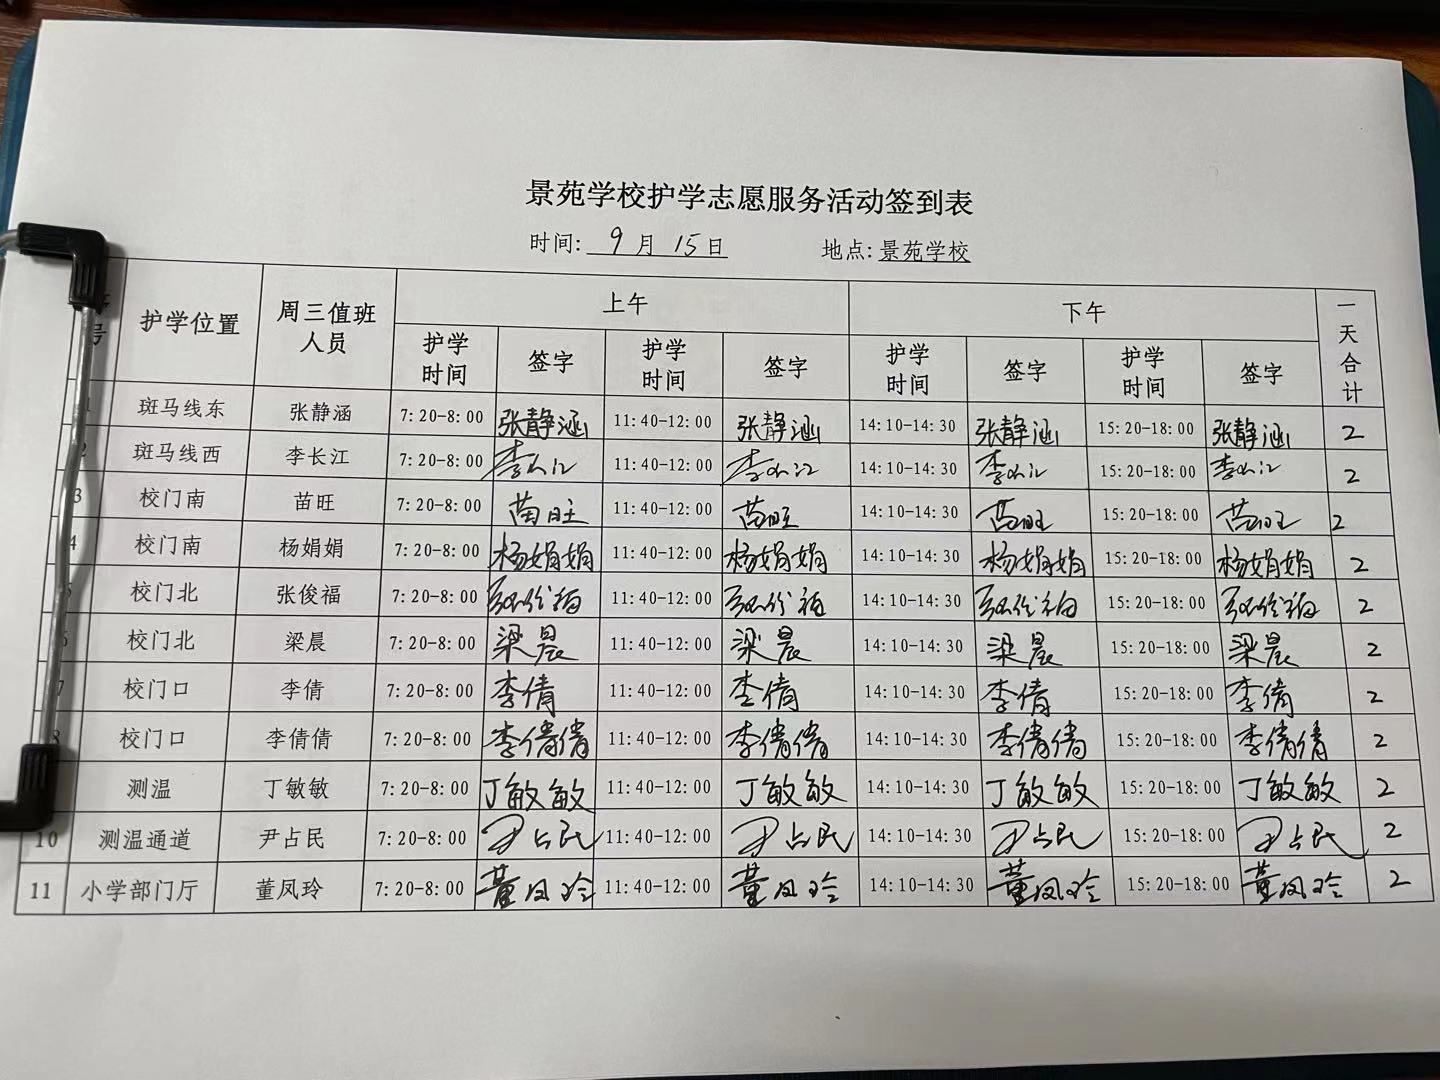 景苑学校护学志愿服务活动签到表
时间: 9月15日 地点: 景苑学校
号 护学位置 周三值班人员 上午 下午 一天合计
护学时间 签字 护学时间 签字 护学时间 签字 护学时间 签字
1 斑马线东 张静涵 7:20-8:00 张静涵 11:40-12:00 张静涵 14:10-14:30 张静涵 15:20-18:00 张静涵 2
2 斑马线西 李长江 7:20-8:00 李长江 11:40-12:00 李长江 14:10-14:30 李长江 15:20-18:00 李长江 2
3 校门南 苗旺 7:20-8:00 苗旺 11:40-12:00 苗旺 14:10-14:30 苗旺 15:20-18:00 苗旺 2
4 校门南 杨娟娟 7:20-8:00 杨娟娟 11:40-12:00 杨娟娟 14:10-14:30 杨娟娟 15:20-18:00 杨娟娟 2
校门北 张俊福 7:20-8:00 张俊福 11:40-12:00 张俊福 14:10-14:30 张俊福 15:20-18:00 张俊福 2
6 校门北 梁晨 7:20-8:00 梁晨 11:40-12:00 梁晨 14:10-14:30 梁晨 15:20-18:00 梁晨 2
7 校门口 李倩 7:20-8:00 李倩 11:40-12:00 李倩 14:10-14:30 李倩 15:20-18:00 李倩 2
8 校门口 李倩倩 7:20-8:00 李倩倩 11:40-12:00 李倩倩 14:10-14:30 李倩倩 15:20-18:00 李倩倩 2
测温 丁敏敏 7:20-8:00 丁敏敏 11:40-12:00 丁敏敏 14:10-14:30 丁敏敏 15:20-18:00 丁敏敏 2
10 测温通道 尹占民 7:20-8:00 尹占民 11:40-12:00 尹占民 14:10-14:30 尹占民 15:20-18:00 尹占民 2
11 小学部门厅 董凤玲 7:20-8:00 董凤玲 11:40-12:00 董凤玲 14:10-14:30 董凤玲 15:20-18:00 董凤玲 2